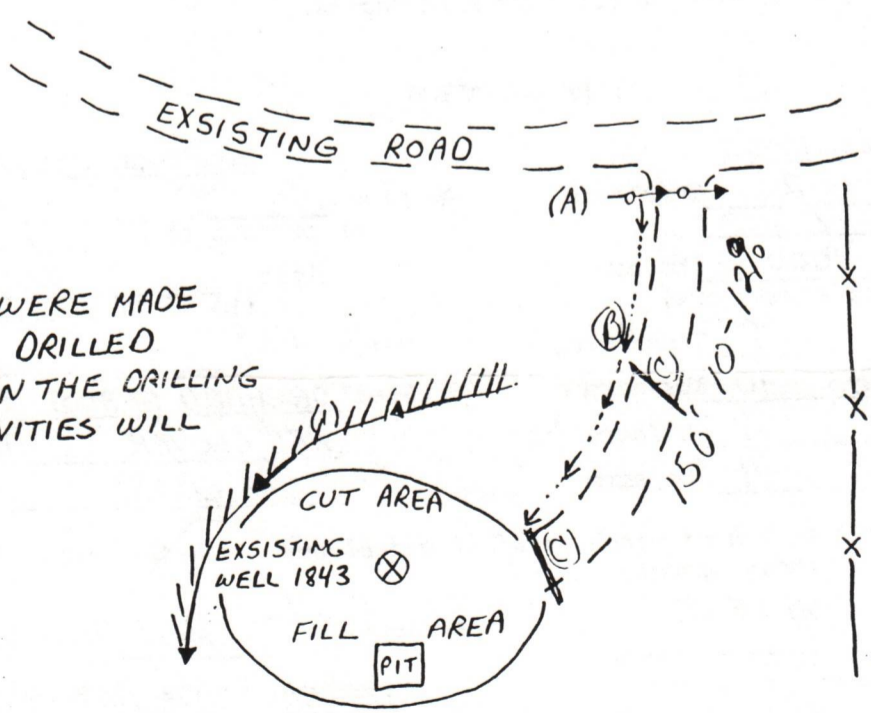 EXSISTING ROAD
(A)
WERE MADE
DRILLED
N THE DRILLING
VITIES WILL
(B)
(C)
10-12%
150
CUT AREA
EXSISTING
WELL 1843
(C)
FILL AREA
PIT